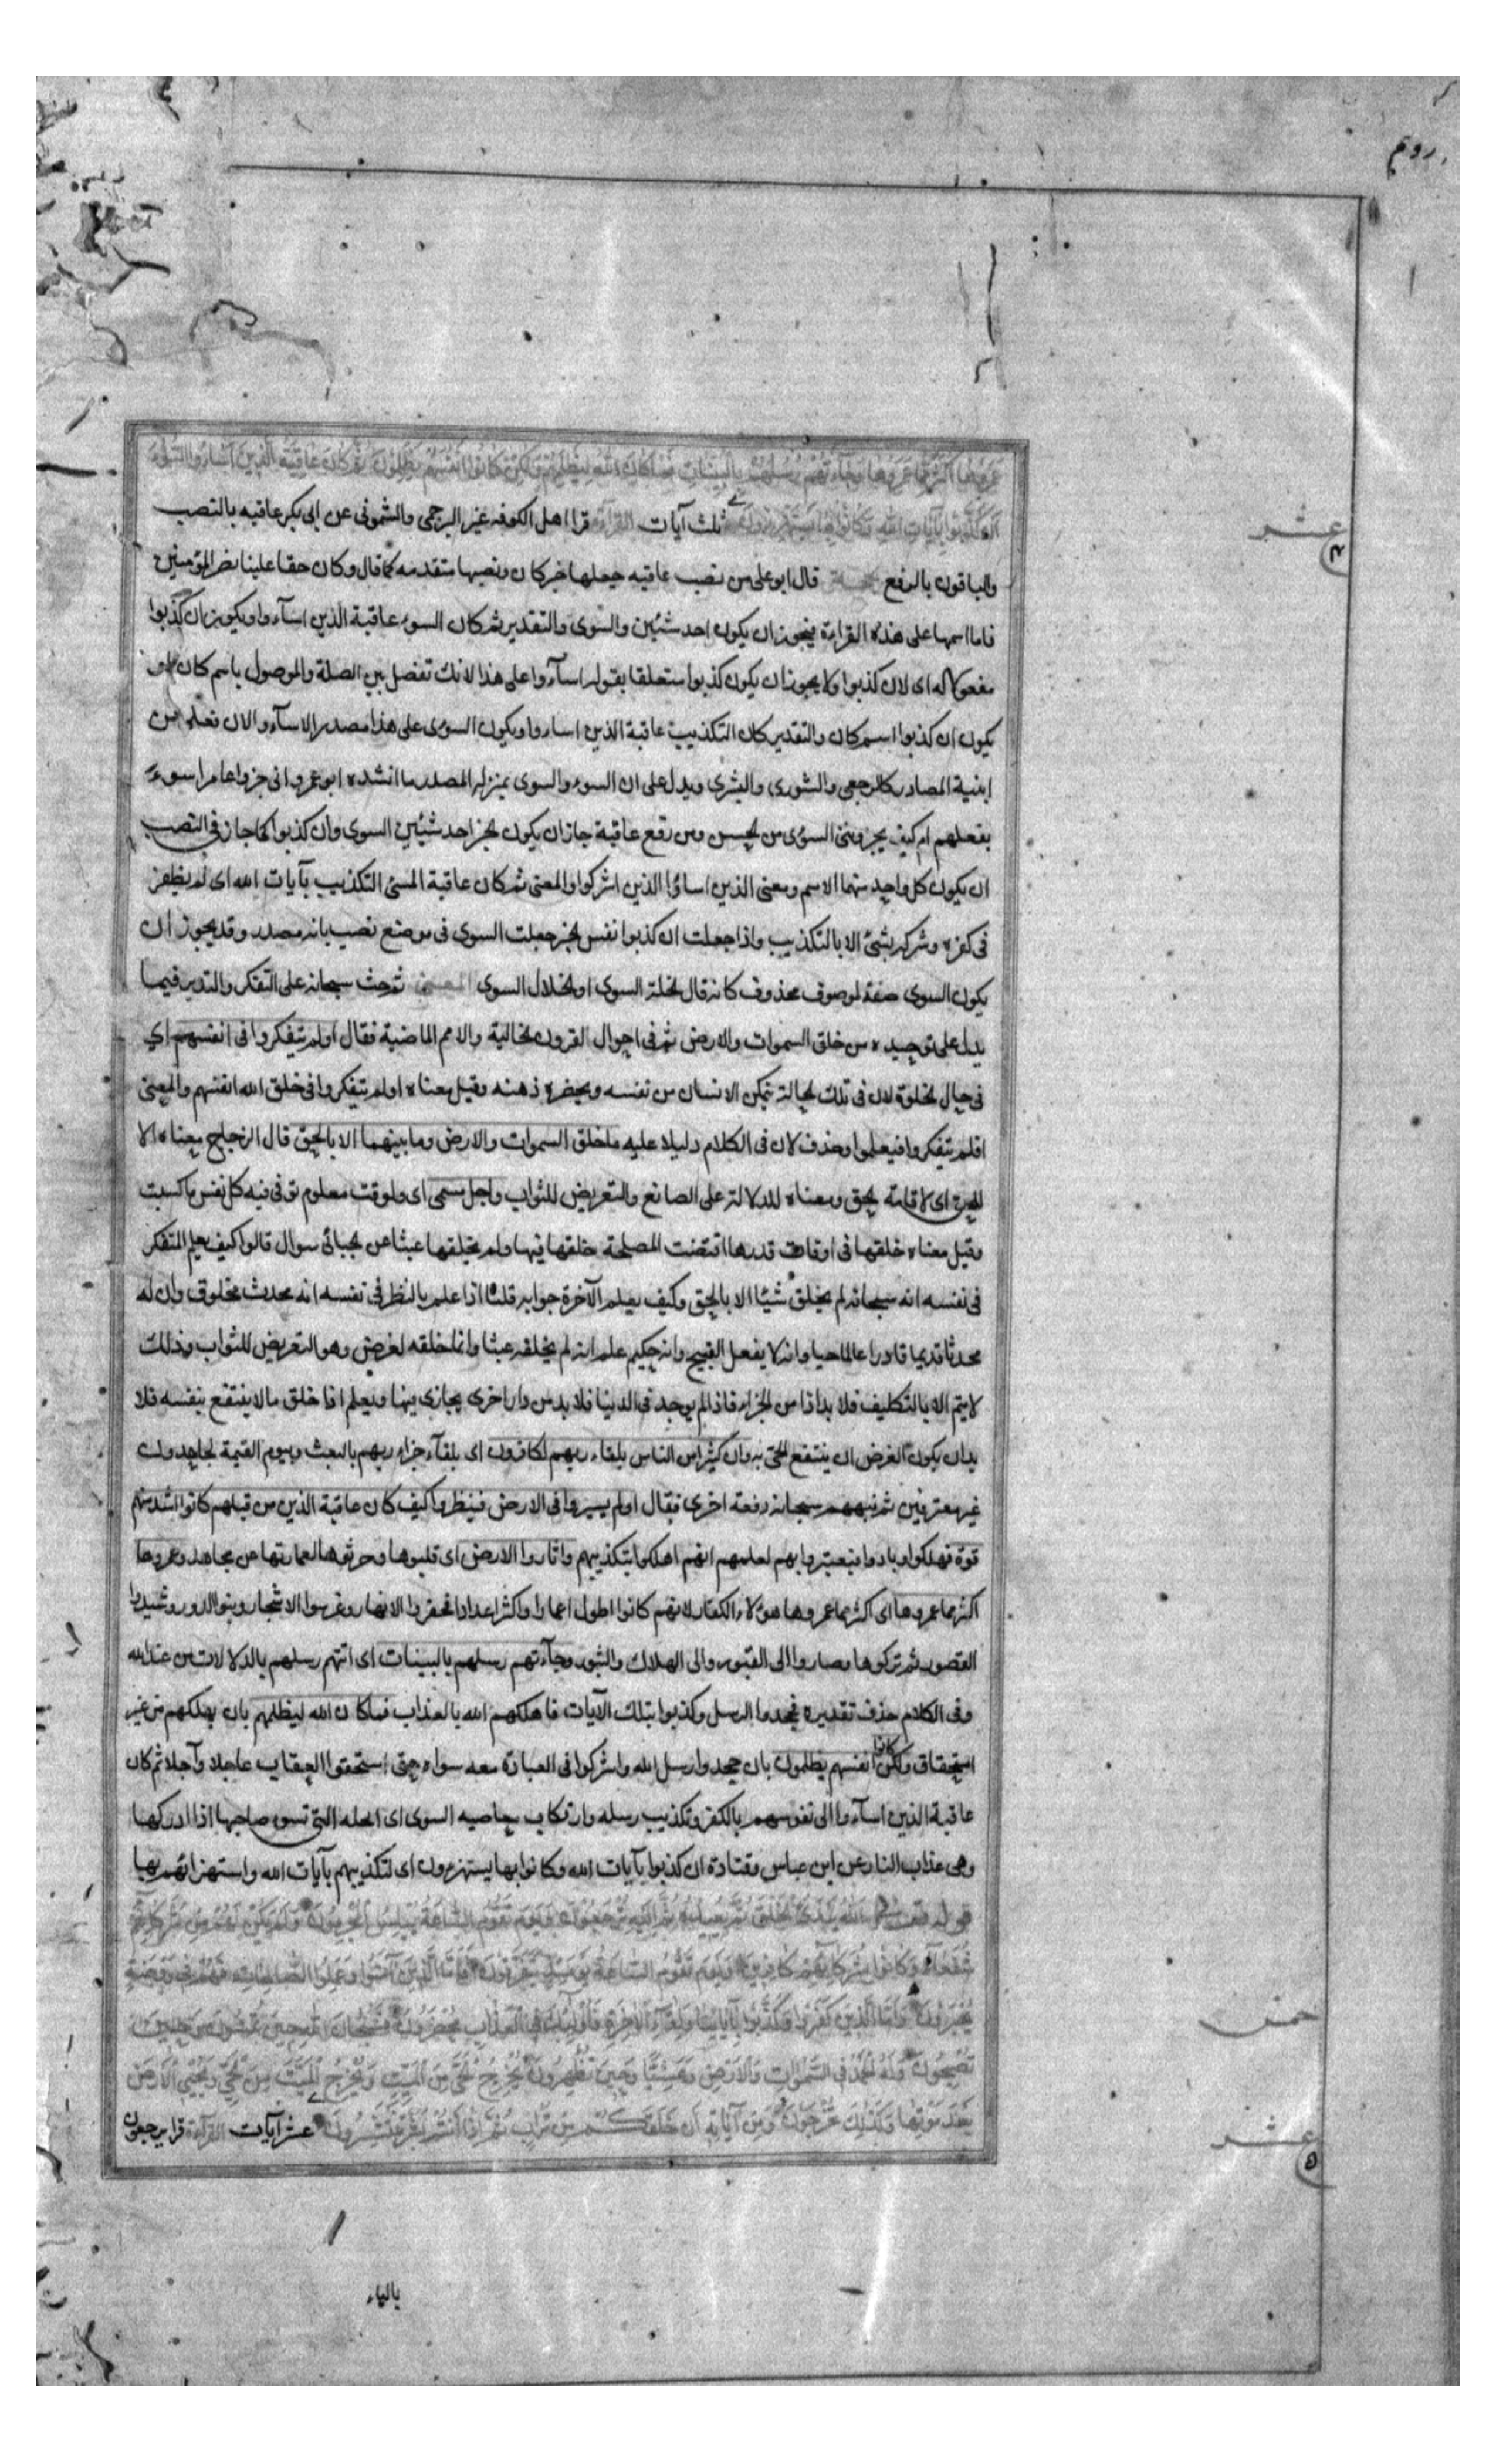 روم
عمروها اكثر مما عمروها وجاءتهم رسلهم بالبينات فما كان الله ليظلمهم ولكن كانوا انفسهم يظلمون ثم كان عاقبة الذين اساؤا السوأى
ان كذبوا بآيات الله وكانوا بها يستهزؤن ثلث آيات القراءة قرا اهل الكوفه غير البرجمى والشمونى عن ابى بكر عاقبه بالنصب
عشر
والباقون بالرفع الحجة قال ابو على من نصب عاقبه جعلها خبر كان ونصبها متقدمه كما قال وكان حقا علينا نصر المؤمنين
فاما اسمها على هذه القراءة فيجوز ان يكون احد شيئين والسوى والتقدير ثم كان السوء عاقبة الذين اسآء وا ويكون ان كذبوا
مفعولا له اى لان كذبوا ولا يجوز ان يكون كذبوا متعلقا بقوله اسآءوا على هذا لانك تفصل بين الصلة والموصول باسم كان او
يكون ان كذبوا اسم كان والتقدير كان التكذيب عاقبة الذين اساءوا ويكون السوى على هذا مصدر الاسآء والان فعلى من
ابنية المصادر كالرجعى والشورى والبشرى ويدل على ان السوء والسوى بمنزلة المصدر ما انشده ابو عمرو انى جزوا عامرا سوءً
بفعلهم ام كيف يجزوننى السوءى من الحسن ومن رفع عاقبة جاز ان يكون الخبر احد شيئين السوى وان كذبوا كما جاز فى النصب
ان يكون كل واحد منهما الاسم ومعنى الذين اساؤا الذين اشركوا والمعنى ثم كان عاقبة المسئ التكذيب بآيات الله اى لم يظفر
فى كفره وشركه بشئ الا بالتكذيب واذا جعلت ان كذبوا نفس الخبر جعلت السوى فى موضع نصب بانه مصدر وقد يجوز ان
يكون السوى صفة لموصوف محذوف كانه قال الخلة السوى او الخلال السوى المعنى ثم حث سبحانه على التفكر والتدبر فيما
يدل على توحيده من خلق السموات والارض ثم فى احوال القرون الخالية والامم الماضية فقال اولم يتفكروا فى انفسهم اى
فى حال الخلوة لان فى تلك الحالة يتمكن الانسان من نفسه ويحضره ذهنه وقيل معناه اولم يتفكروا فى خلق الله انفسهم والمعنى
اولم يتفكروا فيعلموا وحذف لان فى الكلام دليلا عليه ما خلق السموات والارض وما بينهما الا بالحق قال الزجاج معناه الا
للحق اى لاقامة الحق ومعناه للدلالة على الصانع والتعريض للثواب واجل مسمى اى ولوقت معلوم توفى فيه كل نفس ما كسبت
وقيل معناه خلقها فى اوقات قدرها اقتضت المصلحة خلقها فيها ولم يخلقها عبثا عن الجبائى سوال قالوا كيف يعلم المتفكر
فى نفسه انه سبحانه لم يخلق شيئا الا بالحق وكيف يعلم الآخرة جوابه قلنا اذا علم بالنظر فى نفسه انه محدث مخلوق وان له
محدثا قديما قادرا عالما حيا وانه لا يفعل القبيح وانه حكيم علم انه لم يخلقه عبثا وانما خلقه لغرض وهو التعريض للثواب وذلك
لا يتم الا بالتكليف فلا بد اذا من الجزاء فاذا لم يوجد فى الدنيا فلا بد من دار اخرى يجازى فيها ويعلم اذا خلق ما لا ينتفع بنفسه فلا
بد ان يكون الغرض ان ينتفع الحى به وان كثيرا من الناس بلقاء ربهم لكافرون اى بلقآء جزاء ربهم بالبعث وبيوم القيمة لجاحدون
غير معترفين ثم نبههم سبحانه دفعة اخرى فقال اولم يسيروا فى الارض فينظروا كيف كان عاقبة الذين من قبلهم كانوا اشد منهم
قوة فهلكوا وبادوا فيعتبروا بهم لعلمهم انهم اهلكوا بتكذيبهم واثاروا الارض اى قلبوها وحرثوها لعمارتها عن مجاهد وعمروها
اكثر مما عمروها اى اكثر مما عمروها هؤلاء الكفار لانهم كانوا اطول اعمارا واكثر اعدادا فحفروا الانهار وغرسوا الاشجار وبنوا الدور وشيدوا
القصور ثم تركوها وصاروا الى القبور والى الهلاك والثبور وجآءتهم رسلهم بالبينات اى اتتهم رسلهم بالدلالات من عند الله
وفى الكلام حذف تقديره فجحدوا الرسل وكذبوا بتلك الآيات فاهلكهم الله بالعذاب فما كان الله ليظلمهم بان يهلكهم من غير
استحقاق ولكن كانوا انفسهم يظلمون بان جحدوا رسل الله واشركوا فى العبادة معه سواه حتى استحقوا العقاب عاجلا وآجلا ثم كان
عاقبة الذين اسآءوا الى نفوسهم بالكفر وتكذيب رسله وارتكاب معاصيه السوى اى الخله التى تسوء صاحبها اذا ادركها
وهى عذاب النار عن ابن عباس وقتادة ان كذبوا بآيات الله وكانوا بها يستهزءون اى لتكذيبهم بآيات الله واستهزائهم بها
قوله تعالى الله يبدئ الخلق ثم يعيده ثم اليه ترجعون ويوم تقوم الساعة يبلس المجرمون ولم يكن لهم من شركائهم
شفعاء وكانوا بشركائهم كافرين ويوم تقوم الساعة يومئذ يتفرقون فاما الذين آمنوا وعملوا الصالحات فهم فى روضة
يحبرون واما الذين كفروا وكذبوا بآياتنا ولقاء الآخرة فاولئك فى العذاب محضرون فسبحان الله حين تمسون وحين
خمس
تصبحون وله الحمد فى السموات والارض وعشيا وحين تظهرون يخرج الحى من الميت ويخرج الميت من الحى ويحيى الارض
بعد موتها وكذلك تخرجون ومن آياته ان خلقكم من تراب ثم اذا انتم بشر تنتشرون عشر آيات القراءة قرا يرجعون
عشر
بالياء